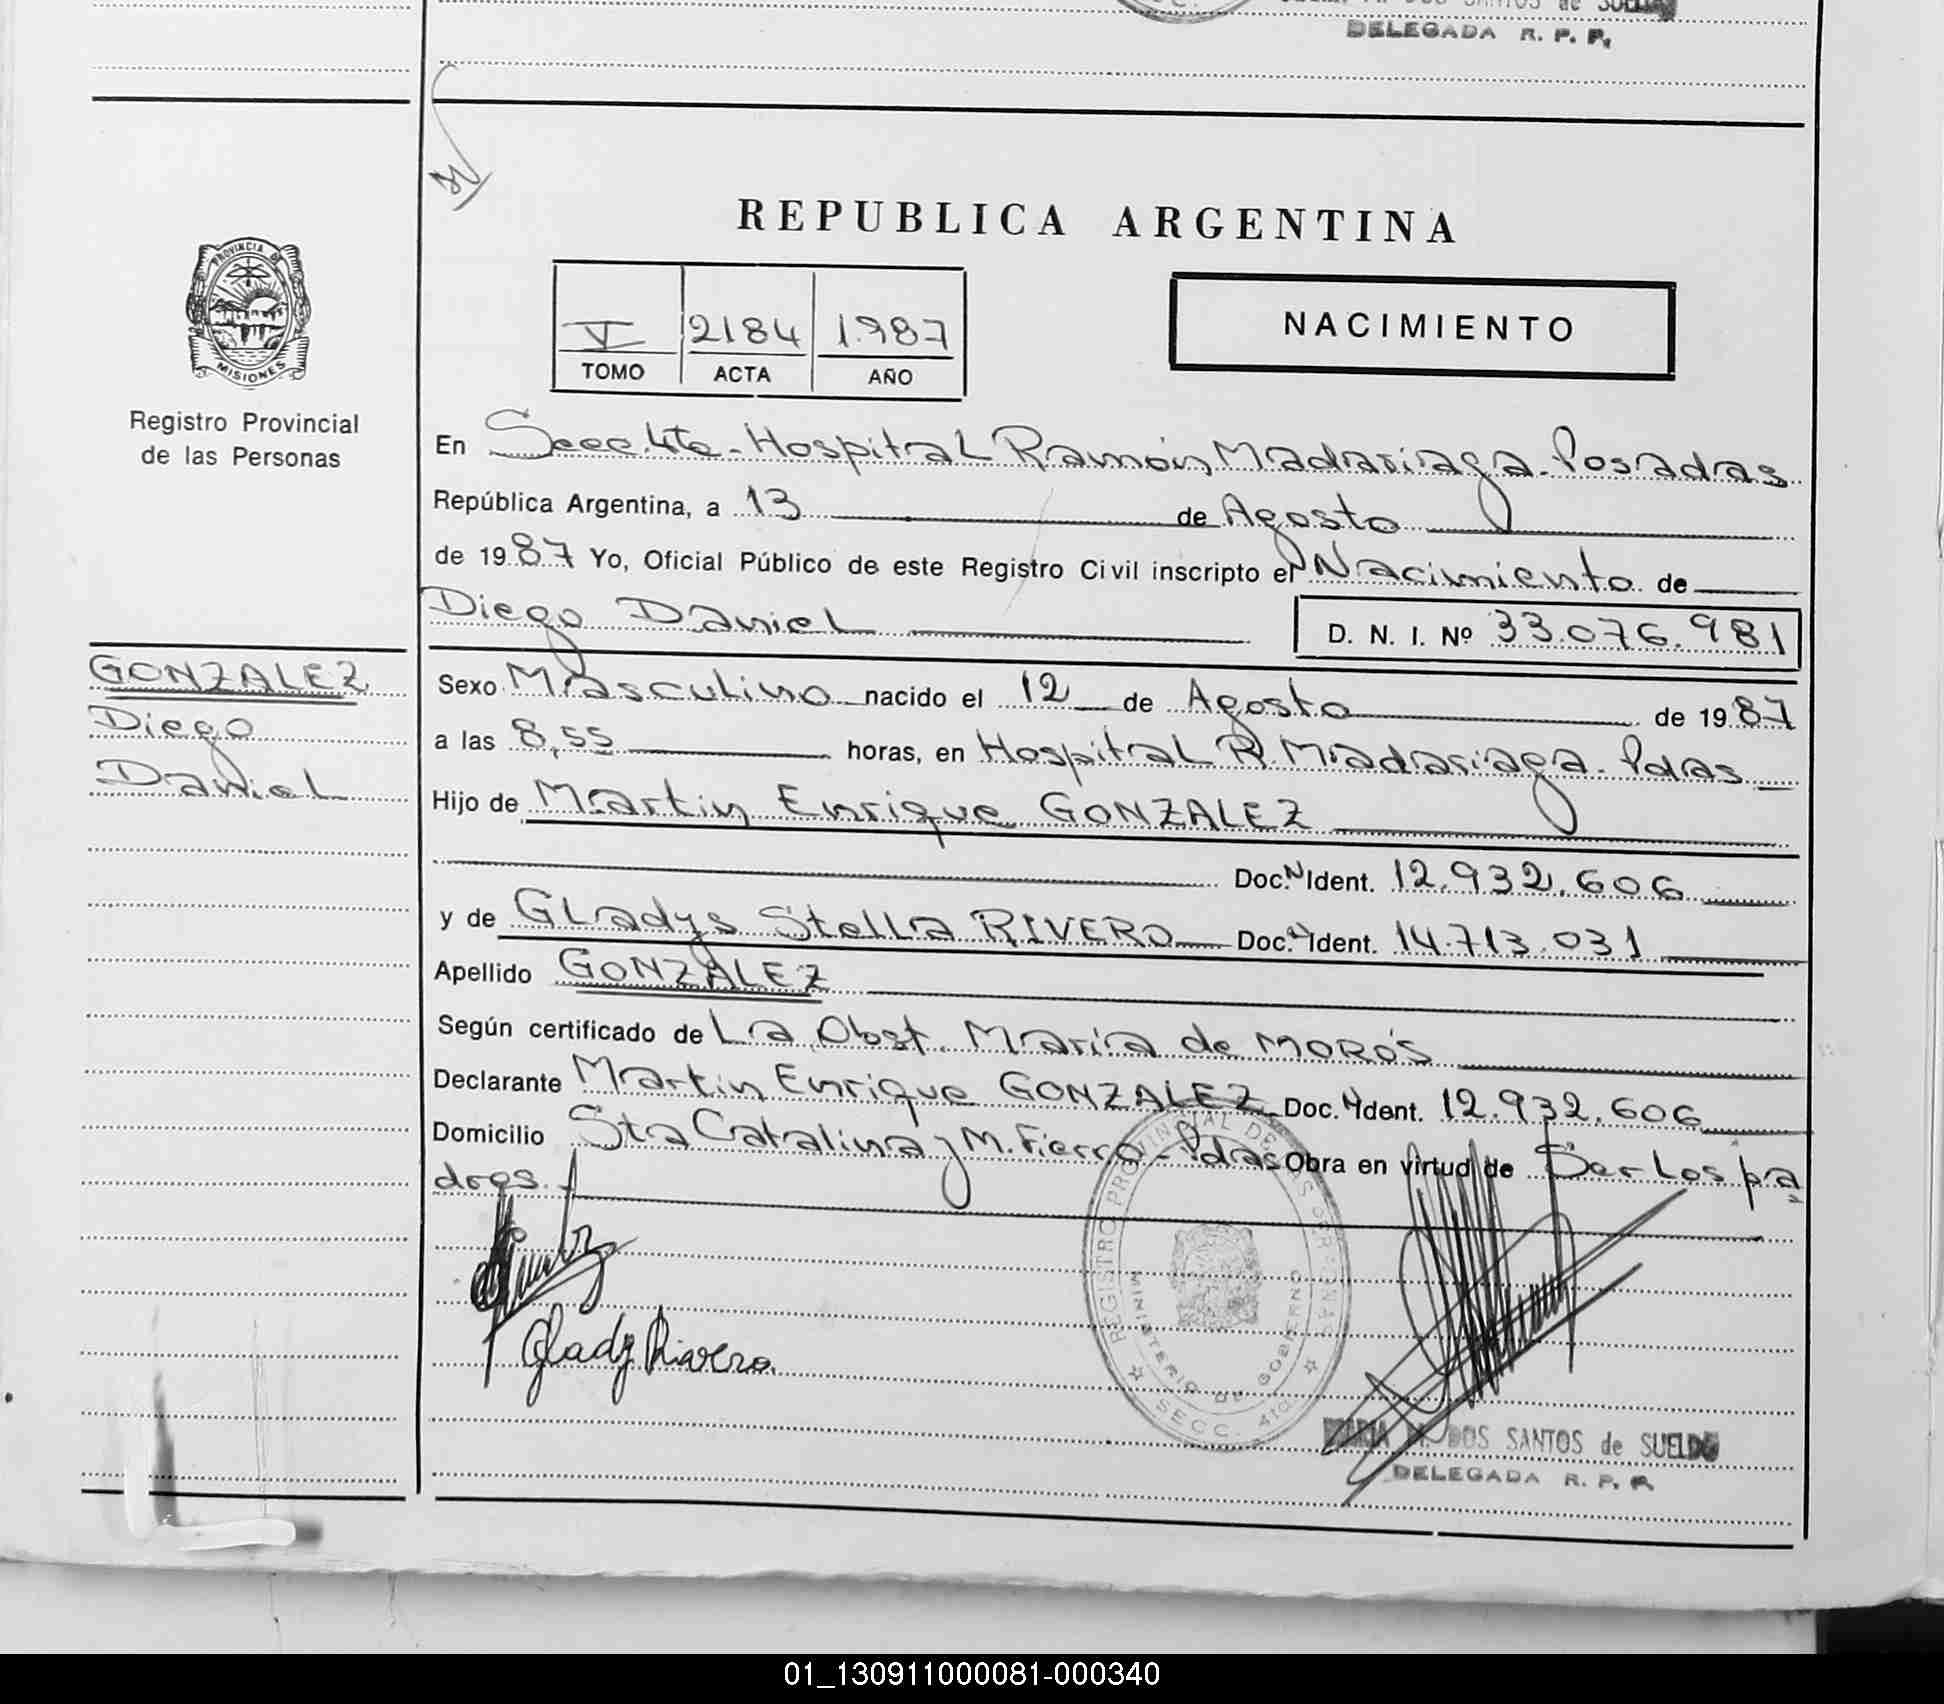 DOS SANTOS de SUELDO
DELEGADA R. P. P.
REPUBLICA ARGENTINA
PROVINCIA DE
MISIONES
Registro Provincial
de las Personas
V 2184 1.987
TOMO ACTA AÑO
NACIMIENTO
En Secc. 4ta - Hospital Ramón Madariaga - Posadas
República Argentina, a 13 de Agosto
de 1987 Yo, Oficial Público de este Registro Civil inscripto el Nacimiento de
Diego Daniel D. N. I. Nº 33.076.981
GONZALEZ
Diego
Daniel
Sexo Masculino nacido el 12 de Agosto de 1987
a las 8,55 horas, en Hospital R. Madariaga - Pdas
Hijo de Martin Enrique GONZALEZ
Doc. N Ident. 12.932.606
y de Gladys Stella RIVERO Doc. N Ident. 14.713.031
Apellido GONZALEZ
Según certificado de La Obst. María de MORÓS
Declarante Martin Enrique GONZALEZ Doc. N Ident. 12.932.606
Domicilio Sta Catalina y M. Fierro - Pdas Obra en virtud de Ser los pa
dres.
Glady Rivero.
REGISTRO PROVINCIAL DE LAS PERSONAS
MINISTERIO DE GOBIERNO
SECC. 4ta.
MARIA M. DOS SANTOS de SUELDO
DELEGADA R. P. P.
01_130911000081-000340